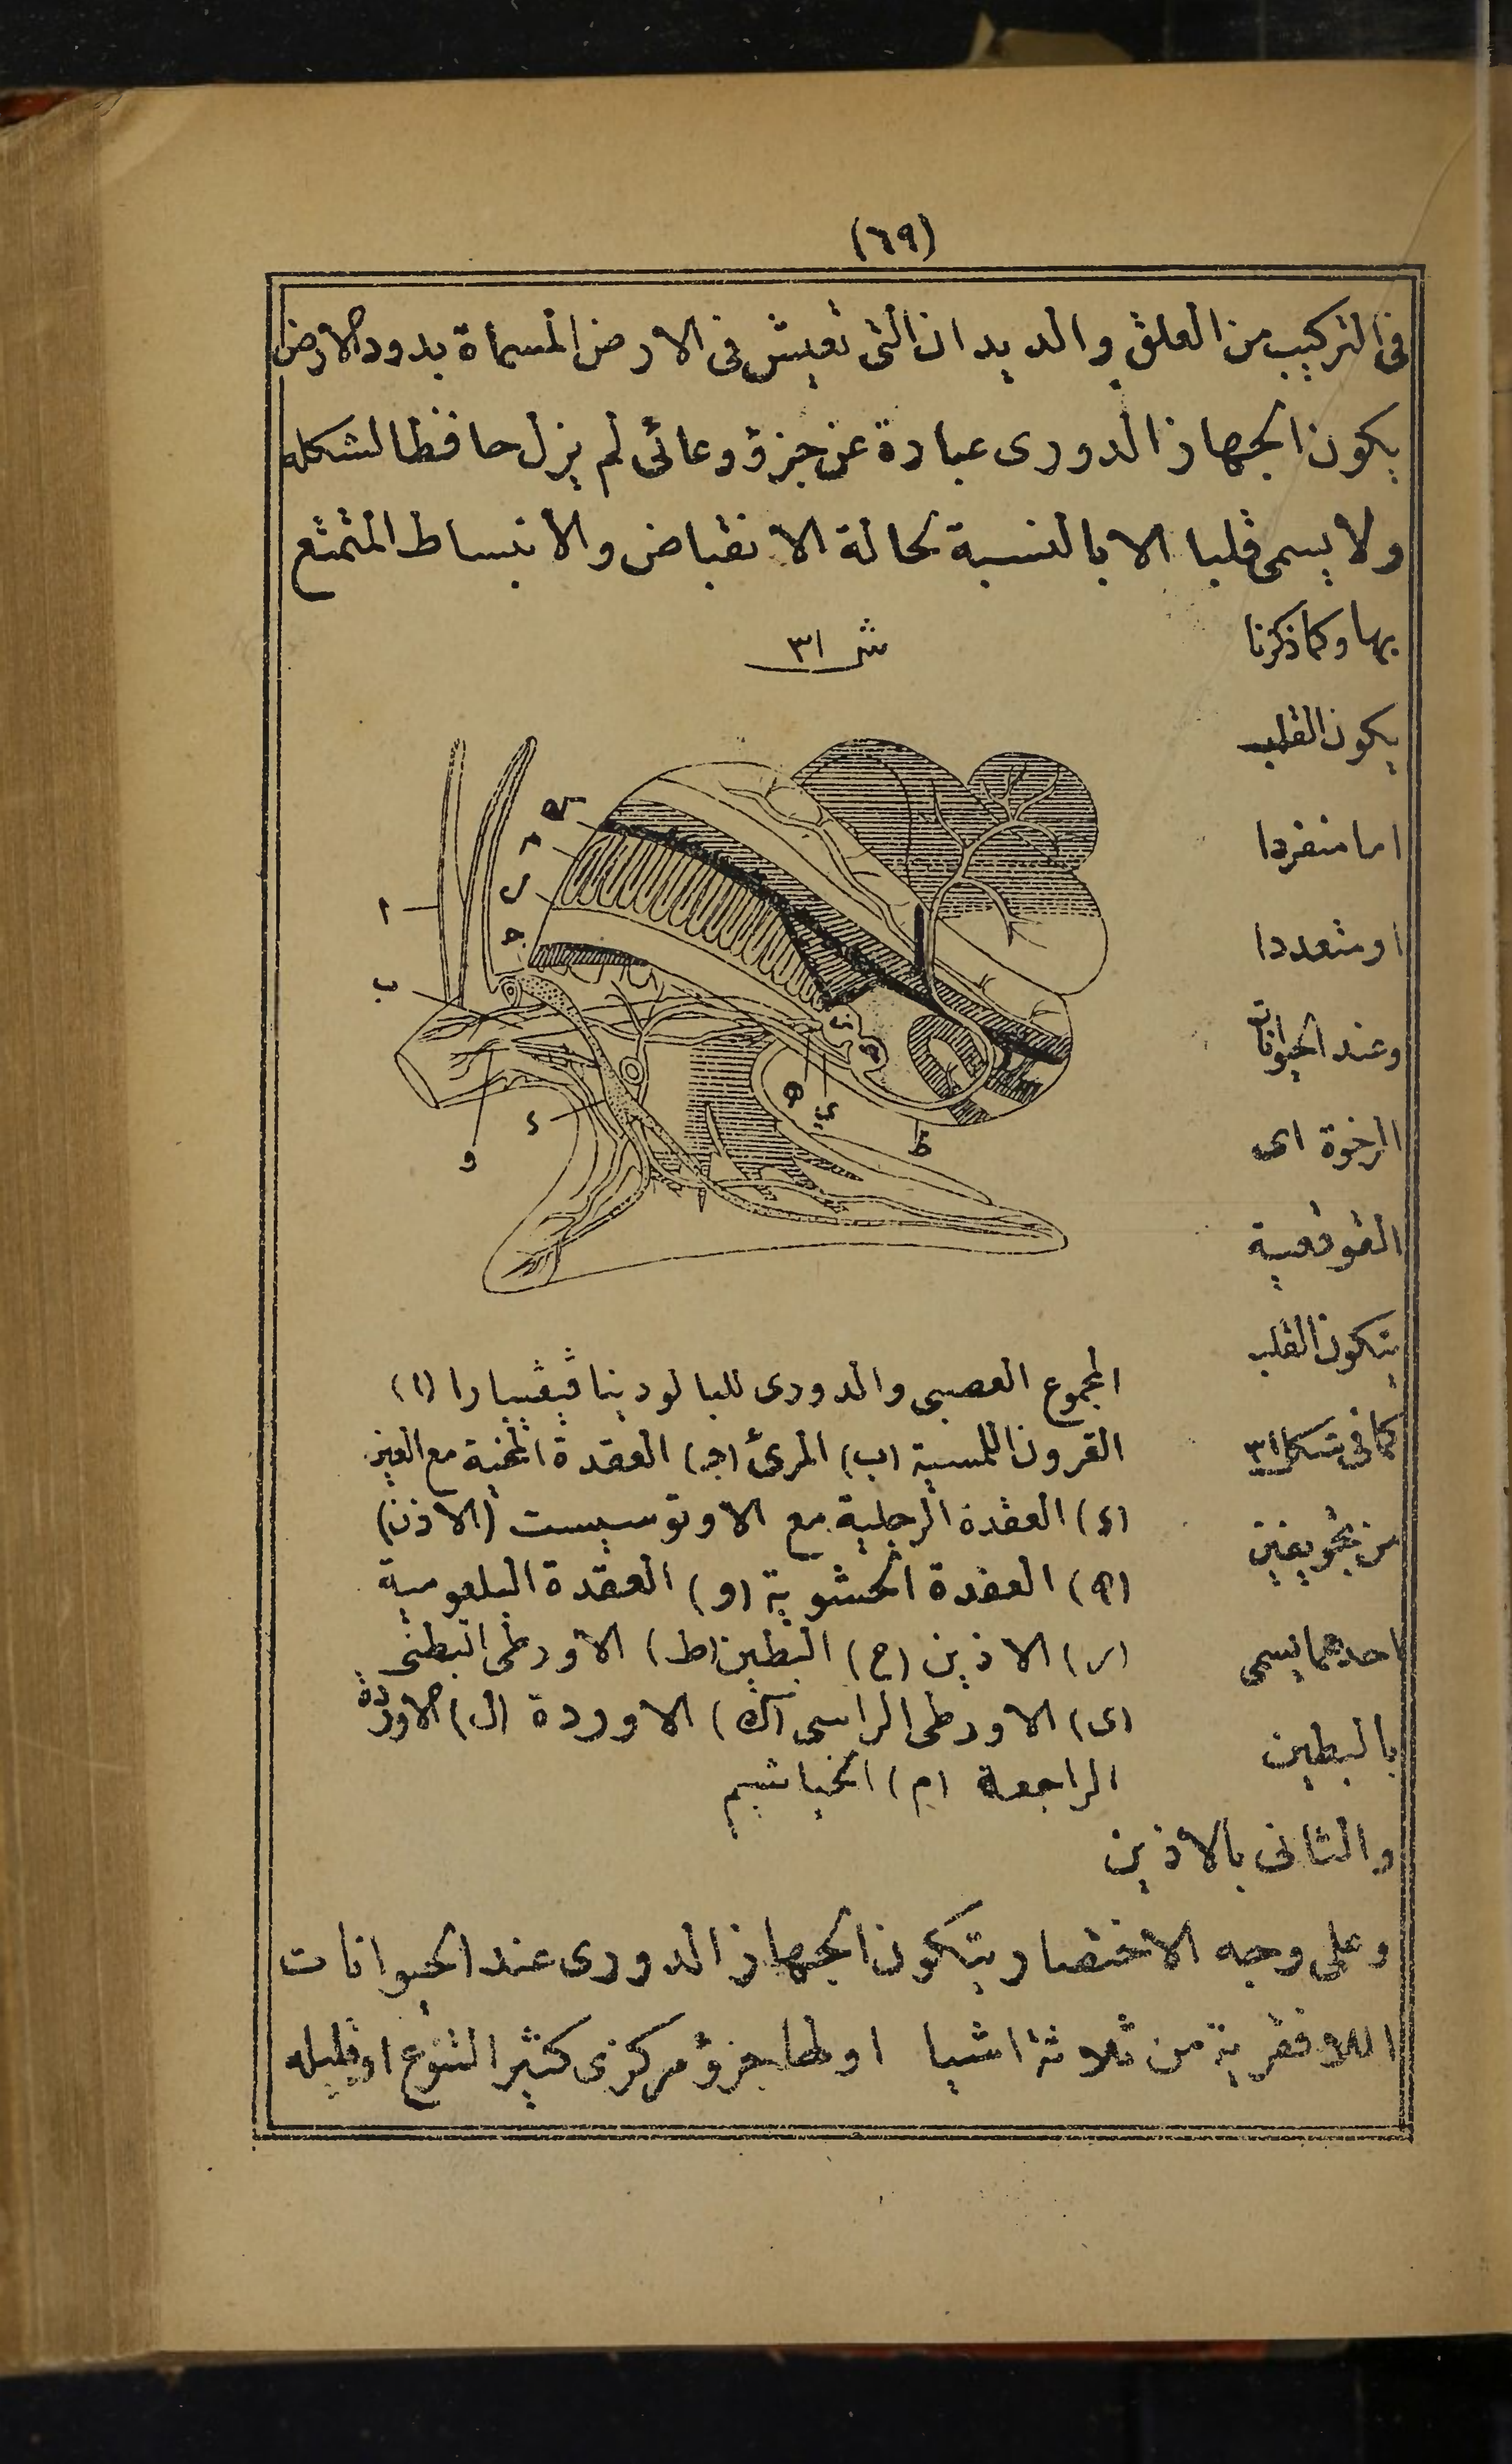 (٦٩)
فى التركيب من العلق والديدان التى تعيش فى الارض المسماة بدود الارض
يكون الجهاز الدورى عبارة عن جزؤ وعائى لم يزل حافظا لشكله
ولا يسمى قلبا الا بالنسبة لحالة الانقباض والانبساط المتمتع
بها وكما ذكرنا
يكون القلب
اما منفردا
او متعددا
وعند الحيوانات
الرخوة اى
القوقعية
يتكون القلب
كما فى شكل ٣١
من تجويفين
احدهما يسمى
بالبطين
والثانى بالاذين
ش ٣١
ك
م
ل
ا
ج
ب
ز
ح
ه
ى
ط
د
و
المجموع العصبى والدورى للبالودينا ڤيڤيبارا (ا)
القرون اللمسية (ب) المرئ (ج) العقدة المخية مع العين
(د) العقدة الرجلية مع الاوتوسيست (الاذن)
(ه) العقدة الحشوية (و) العقدة البلعومية
(ز) الاذين (ح) البطين (ط) الاورطى البطنى
(ى) الاورطى الراسى (ك) الاوردة (ل) الاوردة
الراجعة (م) الخياشيم
وعلى وجه الاختصار يتكون الجهاز الدورى عند الحيوانات
اللافقرية من ثلاثة اشيا اولها جزؤ مركزى كثير التنوع او قليله